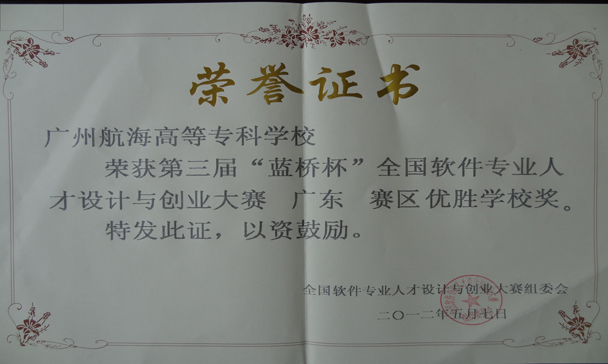 荣誉证书
广州航海高等专科学校
荣获第三届“蓝桥杯”全国软件专业人
才设计与创业大赛 广东 赛区优胜学校奖。
特发此证，以资鼓励。
全国软件专业人才设计与创业大赛组委会
二〇一二年五月七日